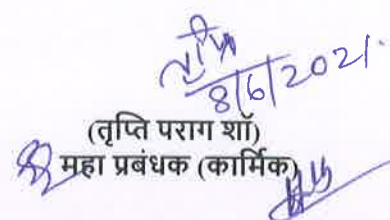 8/6/2021.
(तृप्ति पराग शॉ)
महा प्रबंधक (कार्मिक)